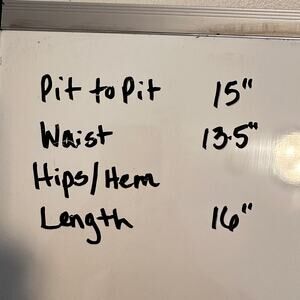 Pit to Pit 15"
Waist 13.5"
Hips/Hem
Length 16"